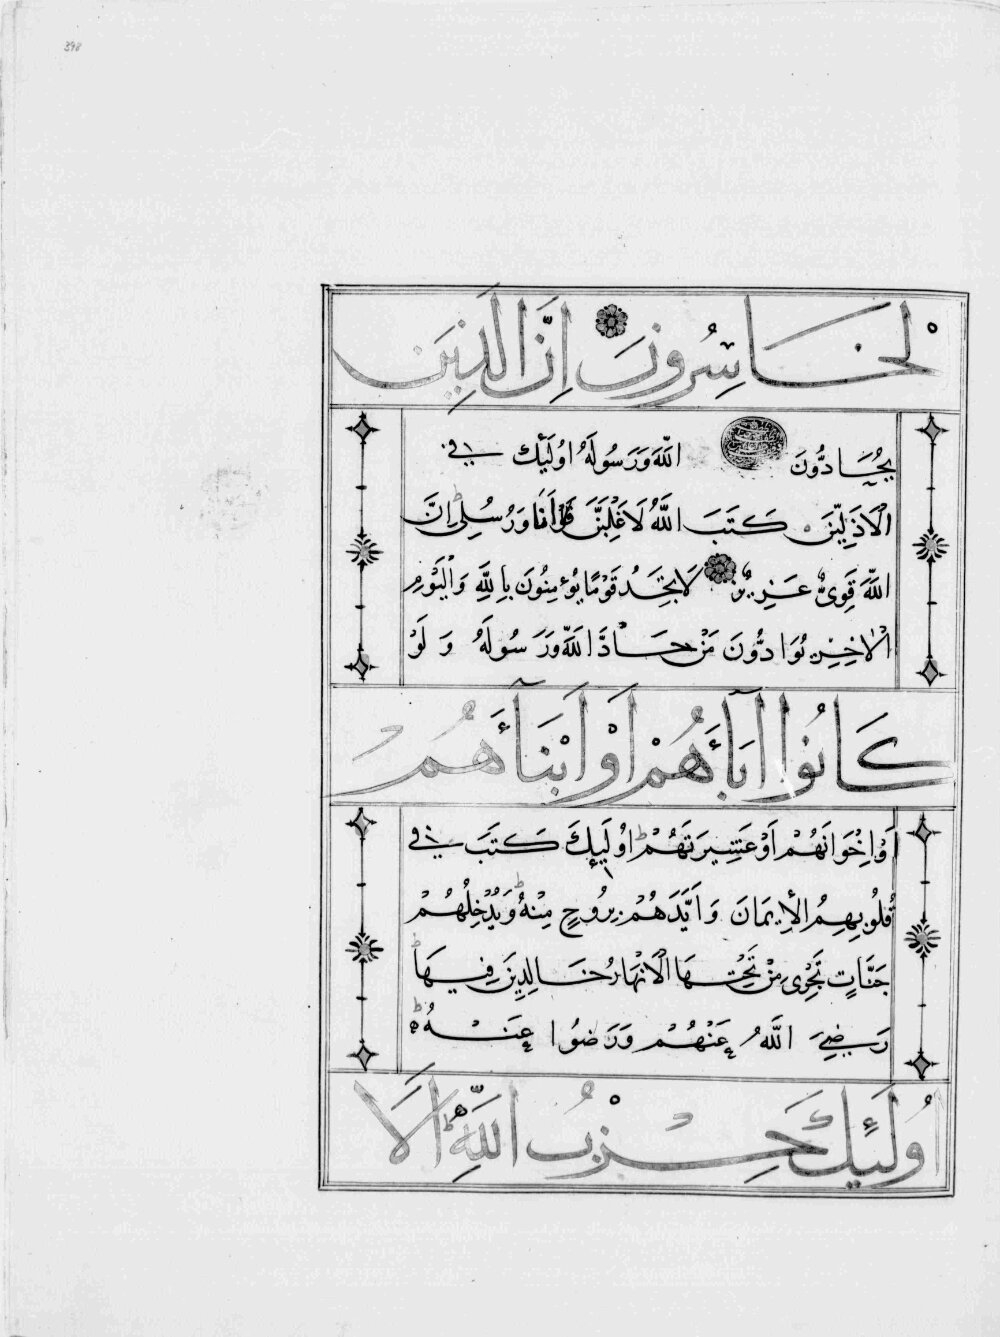 398
لْخَاسِرُونَ اِنَّ الَّذِينَ
يُحَادُّونَ اللّٰهَ وَرَسُولَهُ اُولَئِكَ فِي
الْاَذَلِّينَ كَتَبَ اللّٰهُ لَاَغْلِبَنَّ اَنَا وَرُسُلِي اِنَّ
اللّٰهَ قَوِيٌّ عَزِيزٌ لَا تَجِدُ قَوْمًا يُؤْمِنُونَ بِاللّٰهِ وَالْيَوْمِ
الْاٰخِرِ يُوَادُّونَ مَنْ حَادَّ اللّٰهَ وَرَسُولَهُ وَلَوْ
كَانُوا آبَاءَهُمْ اَوْ اَبْنَاءَهُمْ
اَوْ اِخْوَانَهُمْ اَوْ عَشِيرَتَهُمْ اُولَئِكَ كَتَبَ فِي
قُلُوبِهِمُ الْاِيمَانَ وَاَيَّدَهُمْ بِرُوحٍ مِنْهُ وَيُدْخِلُهُمْ
جَنَّاتٍ تَجْرِي مِنْ تَحْتِهَا الْاَنْهَارُ خَالِدِينَ فِيهَا
رَضِيَ اللّٰهُ عَنْهُمْ وَرَضُوا عَنْهُ
اُولَئِكَ حِزْبُ اللّٰهِ اَلَا